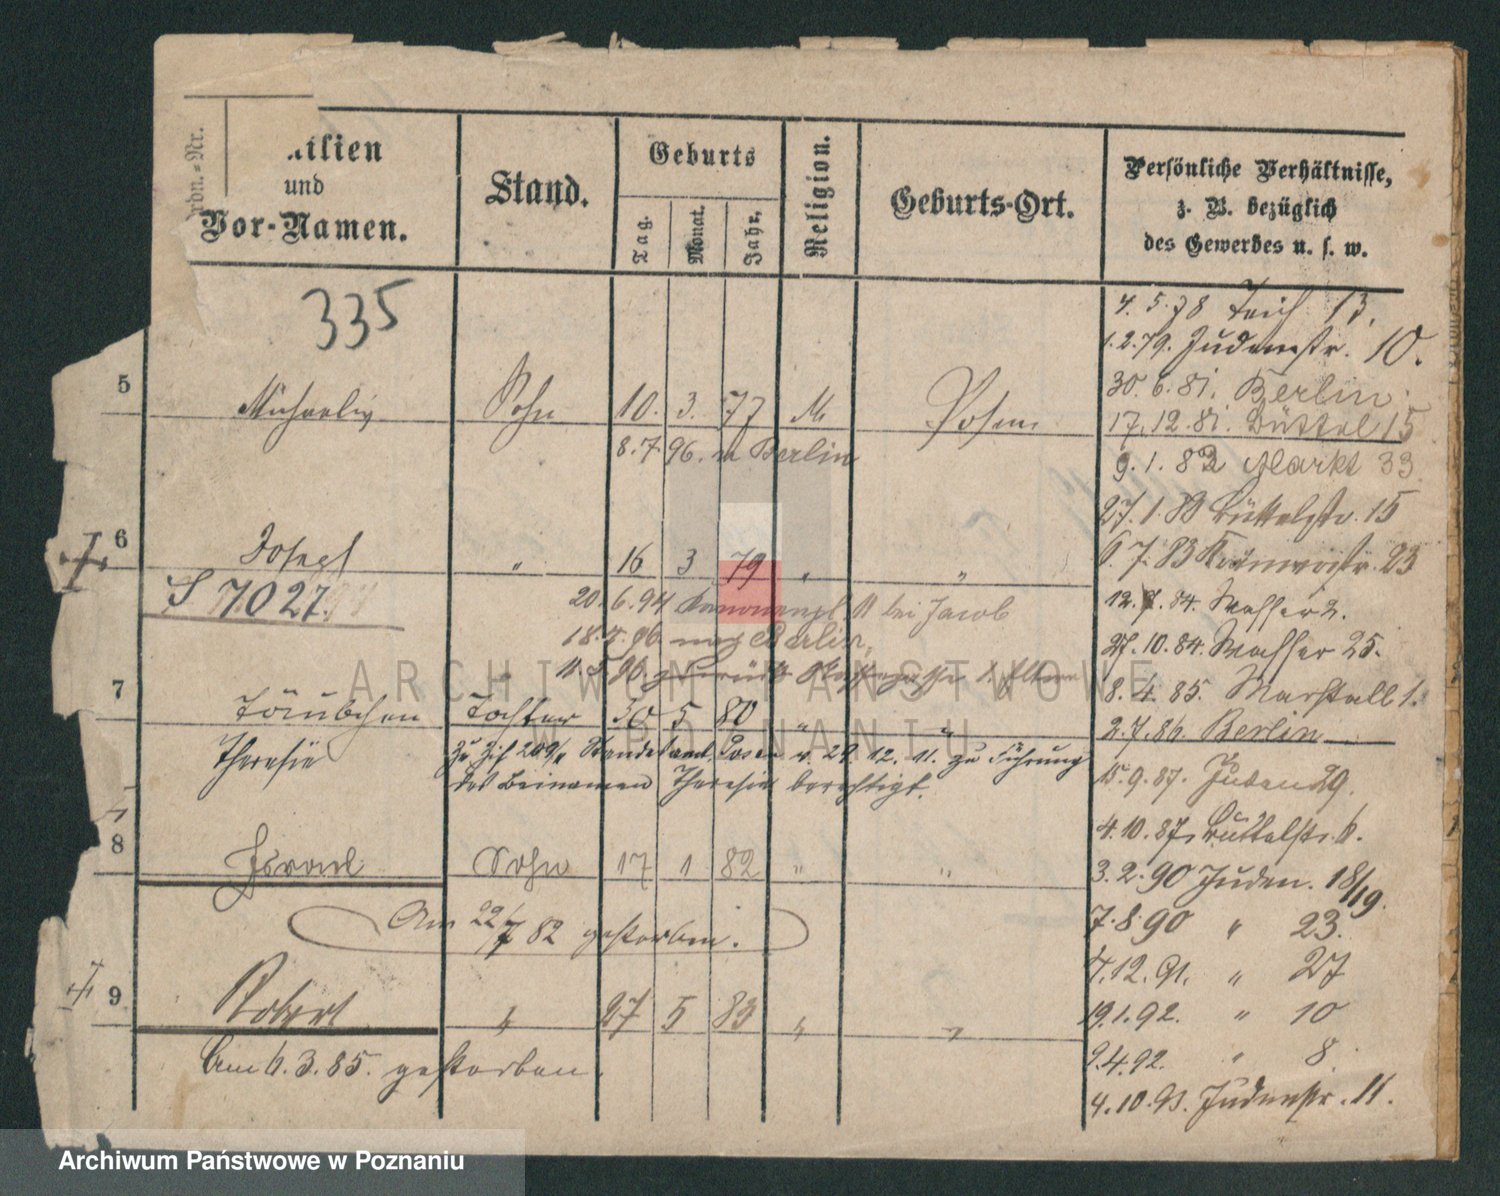 Ordn.-Nr.
ilien
und
Vor-Namen.
Stand.
Geburts
Tag.
Monat.
Jahr.
Religion.
Geburts-Ort.
Persönliche Verhältnisse,
z. B. bezüglich
des Gewerbes u. s. w.
335
4. 5. 78 Teich 13.
1. 2. 79. Judenstr. 10.
30. 6. 81. Berlin.
5 Michaelis Sohn 10. 3. 77 M. Posen
17. 12. 81. Büttel 15
8. 7. 96. n Berlin
9. 1. 82 Markt 33
27. 1. 83 Büttelstr. 15
6 Josef " 16 3 79 " "
6. 7. 83 23
S 7027.
20. 6. 94 bei Jacob
12. 7. 84. Wasser 2.
18. 3. 96 nach Berlin,
27. 10. 84. Wasser 25.
11. 5. 96 zurück
ARCHIWUM PAŃSTWOWE
W POZNANIU
8. 4. 85. Marstall 1.
7 Täubchen Tochter 30 5 80 " "
2. 7. 86. Berlin
Theresie
Zu Zif Standesamt Posen v. 29. 12. 11. zu Führung
des Beinamen Theresie berechtigt.
15. 9. 87. Juden 29.
4. 10. 87. Büttelstr. 6.
8 Israel Sohn 17 1 82 " "
3. 2. 90 Juden. 18/19.
Am 22/7 82 gestorben.
7. 8. 90 " 23.
4. 12. 91. " 27
9 Robert " 27 5 83 " "
19. 1. 92. " 10
Am 6. 3. 85. gestorben.
2. 4. 92. " 8.
4. 10. 93. Judenstr. 11.
Archiwum Państwowe w Poznaniu